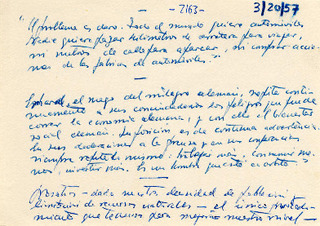 - 2163-
3/20/57
"El problema es claro. Todo el mundo quiere automóviles.
Nadie quiere pagar kilómetros de carretera para viajar,
ni metros de calle para aparcar, ni comprar acciones
de las fábricas de automóviles."
—
Erhard, el mago del milagro alemán, repite continuamente
a sus conciudadanos los peligros que puede
correr la economía alemana, y con ella el bienestar
social alemán. Su posición es de continua advertencia.
En sus declaraciones a la prensa y en sus conferencias
siempre repite lo mismo: trabajar más, consumir menos,
invertir más. Es un hombre que está
—
Nosotros - dada nuestra densidad de población
limitación de recursos naturales - el único procedimiento
que tenemos para mejorar nuestro nivel -